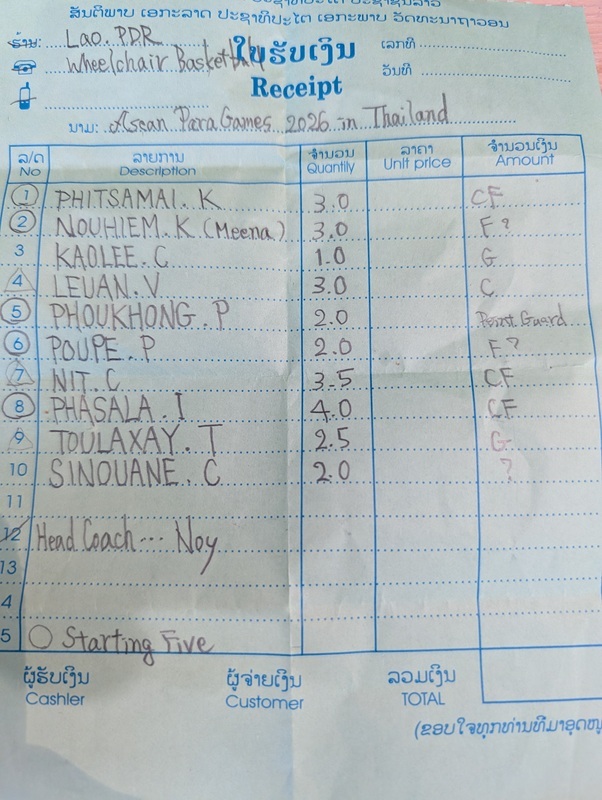 ສັນຕິພາບ ເອກະລາດ ປະຊາທິປະໄຕ ເອກະພາບ ວັດທະນາຖາວອນ
ຮ້ານ: Lao. PDR
Wheelchair Basketball
ໃບຮັບເງິນ
Receipt
ເລກທີ
ວັນທີ
ນາມ: Asean Para Games 2026 in Thailand
ລ/ດ ລາຍການ ຈຳນວນ ລາຄາ ຈຳນວນເງິນ
No Description Quantily Unit price Amount
1 PHITSAMAI. K 3.0 CF
2 NOUHIEM. K (Meena) 3.0 F?
3 KAOLEE. C 1.0 G
4 LEUAN. V 3.0 C
5 PHOUKHONG. P 2.0 Point Guard
6 POUPE. P 2.0 F?
7 NIT. C 3.5 CF
8 PHASALA. I 4.0 CF
9 TOULAXAY. T 2.5 G
10 SINOUANE. C 2.0 ?
11
12 Head Coach... Noy
13
4
5 Starting Five
ຜູ້ຮັບເງິນ ຜູ້ຈ່າຍເງິນ ລວມເງິນ
Cashler Customer TOTAL
(ຂອບໃຈທຸກທ່ານທີ່ມາອຸດໜູ